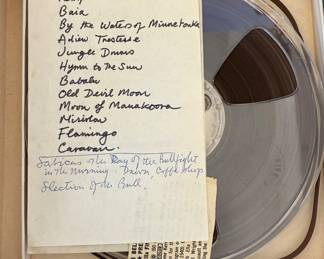 Baia
By the Waters of Minnetonka
Adieu Tristesse
Jungle Drums
Hymn to the Sun
Babalu
Old Devil Moon
Moon of Manakoora
Flamingo
Caravan.
Sabicas The Day of the Bullfight,
in the Morning - Dawn, Coffee Shops
Selection of the Bull.